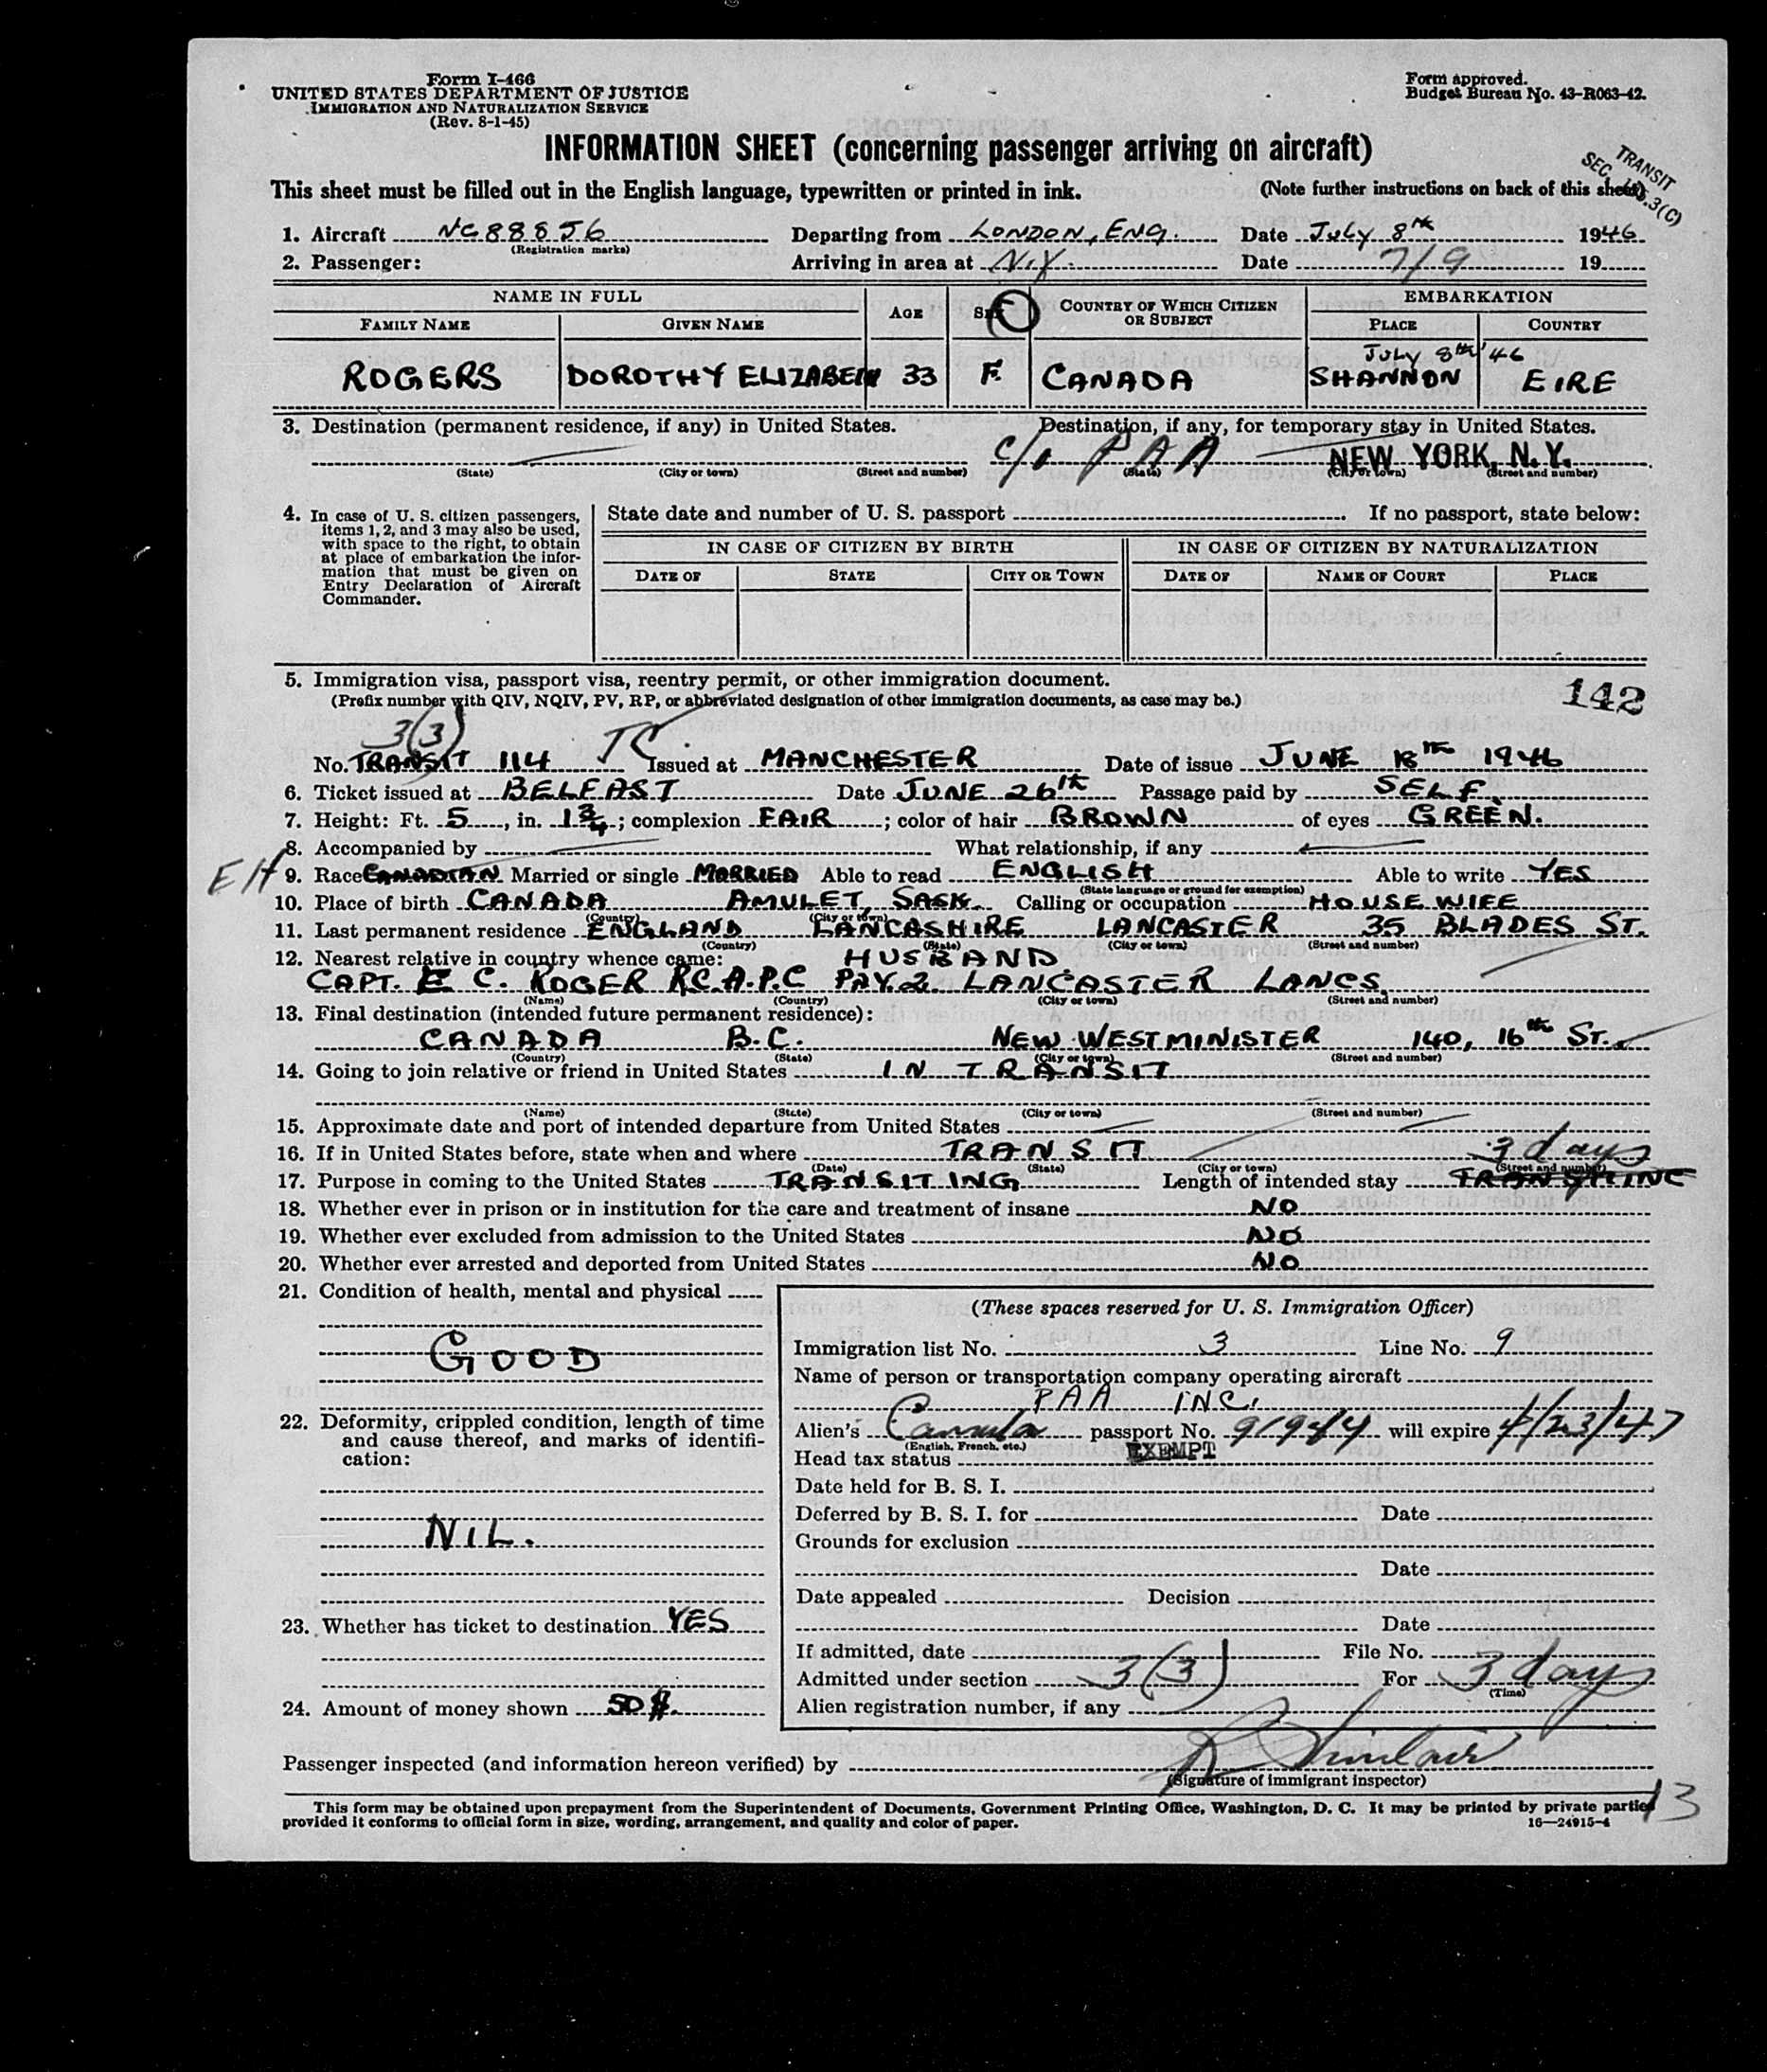 Form I-466
UNITED STATES DEPARTMENT OF JUSTICE
IMMIGRATION AND NATURALIZATION SERVICE
(Rev. 8-1-45)
Form approved.
Budget Bureau No. 43-R063-42.
INFORMATION SHEET (concerning passenger arriving on aircraft)
TRANSIT
This sheet must be filled out in the English language, typewritten or printed in ink. (Note further instructions on back of this sheet)
1. Aircraft Departing from LONDON, ENG. Date July 8th 1946
(Registration marks)
2. Passenger: Arriving in area at N.Y. Date 7/9 19
NAME IN FULL AGE SEX COUNTRY OF WHICH CITIZEN OR SUBJECT EMBARKATION
FAMILY NAME GIVEN NAME PLACE COUNTRY
JULY 8th '46
ROGERS DOROTHY ELIZABETH 33 F. CANADA SHANNON EIRE
3. Destination (permanent residence, if any) in United States. Destination, if any, for temporary stay in United States.
c/o PAA NEW YORK, N.Y.
(State) (City or town) (Street and number) (State) (City or town) (Street and number)
4. In case of U. S. citizen passengers, items 1, 2, and 3 may also be used, with space to the right, to obtain at place of embarkation the information that must be given on Entry Declaration of Aircraft Commander.
State date and number of U. S. passport If no passport, state below:
IN CASE OF CITIZEN BY BIRTH IN CASE OF CITIZEN BY NATURALIZATION
DATE OF STATE CITY OR TOWN DATE OF NAME OF COURT PLACE
5. Immigration visa, passport visa, reentry permit, or other immigration document.
(Prefix number with QIV, NQIV, PV, RP, or abbreviated designation of other immigration documents, as case may be.)
142
3(3) TC
No. TRANSIT 114 Issued at MANCHESTER Date of issue JUNE 18TH 1946
6. Ticket issued at BELFAST Date JUNE 26th Passage paid by SELF.
7. Height: Ft. 5, in. 1 3/4; complexion FAIR; color of hair BROWN of eyes GREEN.
8. Accompanied by What relationship, if any
EH 9. Race CANADIAN Married or single MARRIED Able to read ENGLISH Able to write YES
(State language or ground for exemption)
10. Place of birth CANADA AMULET, SASK. Calling or occupation HOUSEWIFE
(Country) (City or town)
11. Last permanent residence ENGLAND LANCASHIRE LANCASTER 35 BLADES ST.
(Country) (State) (City or town) (Street and number)
12. Nearest relative in country whence came: HUSBAND.
CAPT. E C. ROGER R.C.A.P.C PAY.2. LANCASTER LANCS.
(Name) (Country) (City or town) (Street and number)
13. Final destination (intended future permanent residence):
CANADA B.C. NEW WESTMINISTER 140, 16th ST.
(Country) (State) (City or town) (Street and number)
14. Going to join relative or friend in United States IN TRANSIT
(Name) (State) (City or town) (Street and number)
15. Approximate date and port of intended departure from United States
16. If in United States before, state when and where TRANSIT 3 days
(Date) (State) (City or town) (Street and number)
17. Purpose in coming to the United States TRANSITING Length of intended stay TRANSITING
18. Whether ever in prison or in institution for the care and treatment of insane NO
19. Whether ever excluded from admission to the United States NO
20. Whether ever arrested and deported from United States NO
21. Condition of health, mental and physical
GOOD
22. Deformity, crippled condition, length of time
and cause thereof, and marks of identifi-
cation:
NIL.
23. Whether has ticket to destination YES
24. Amount of money shown 50 $.
(These spaces reserved for U. S. Immigration Officer)
Immigration list No. 3 Line No. 9
Name of person or transportation company operating aircraft
PAA INC.
Alien's Canada passport No. 91944 will expire 4/23/47
(English, French, etc.)
Head tax status EXEMPT
Date held for B. S. I.
Deferred by B. S. I. for Date
Grounds for exclusion
Date
Date appealed Decision
Date
If admitted, date File No.
Admitted under section 3(3) For 3 days
(Time)
Alien registration number, if any
Passenger inspected (and information hereon verified) by R Sinclair
(Signature of immigrant inspector)
13
This form may be obtained upon prepayment from the Superintendent of Documents, Government Printing Office, Washington, D. C. It may be printed by private parties
provided it conforms to official form in size, wording, arrangement, and quality and color of paper. 16—24915-4